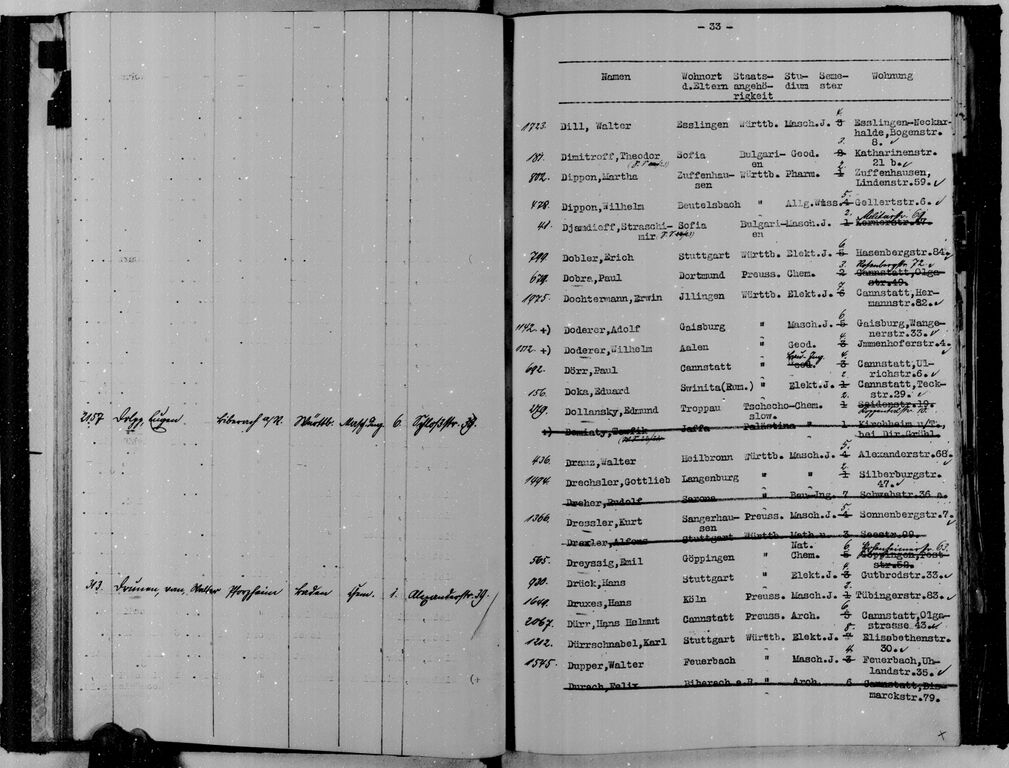 2157 Dolpp, Eugen. Biberach a/R. Württb. Masch.Ing 6. Schloßstr. 59.
313. Drunen van, Walter Pforzheim Baden Chem. 1. Alexanderstr. 39.
- 33 -
Namen Wohnort Staats- Stu- Seme- Wohnung
d.Eltern angehö- dium ster
rigkeit
1723. Dill, Walter Esslingen Württb. Masch.J. 4. Esslingen-Neckar-
halde, Bogenstr.
8.
181. Dimitroff, Theodor Sofia Bulgari- Geod. 3. Katharinenstr.
en 21 b.
802. Dippon, Martha Zuffenhau- Württb. Pharm. 2. Zuffenhausen,
sen Lindenstr.59.
478. Dippon, Wilhelm Beutelsbach " Allg.Wiss. 5. Gellertstr.6.
41. Djamdieff, Straschi- Sofia Bulgari- Masch.J. 2. 1 Kernerstr.47.
mir. en
799. Dobler, Erich Stuttgart Württb. Elekt.J. 6 5 Hasenbergstr.84.
679. Dobra, Paul Dortmund Preuss. Chem. 3. 2 Rosenbergstr 72.
Cannstatt, Olga-
str.49.
1975. Dochtermann, Erwin Jllingen Württb. Elekt.J. 7. Cannstatt, Her-
mannstr.82.
1142. +) Doderer, Adolf Gaisburg " Masch.J. 6 5 Gaisburg, Wange-
nerstr.33.
1172. +) Doderer, Wilhelm Aalen " Geod. 4. 3 Jmmenhoferstr.4.
692. Dörr, Paul Cannstatt " Geod. 4. 3 Cannstatt, Ul-
richstr.6.
156. Doka, Eduard Swinita(Rum.) " Elekt.J. 2. 1 Cannstatt, Teck-
str.29.
279. Dollansky, Edmund Troppau Tschecho- Chem. 2. 1 Seidenstr.19.
slow.
+) Domiaty, Tewfik Jaffa Palästina " 1 Kirchheim u/T.,
bei Dir.Grühl.
436. Drauz, Walter Heilbronn Württb. Masch.J. 5. 4 Alexanderstr.68.
1494. Drechsler, Gottlieb Langenburg " " 2. 1 Silberburgstr.
47.
Dreher, Rudolf Sarona " Bau-Jng. 7 Schwabstr.36 a.
1366. Dressler, Kurt Sangerhau- Preuss. Masch.J. 5. 4 Sonnenbergstr.7.
sen
Drexler, Alfons Stuttgart Württb. Math.u. 3 Seestr.99.
Nat.
565. Dreyssig, Emil Göppingen " Chem. 6. 5 Hohenheimerstr. 63.
Göppingen, Post-
str.59.
930. Drück, Hans Stuttgart " Elekt.J. 4. 3 Gutbrodstr.33.
1649. Druxes, Hans Köln Preuss. Masch.J. 1 Tübingerstr.83.
2067. Dürr, Hans Helmut Cannstatt Preuss. Arch. 6 5 Cannstatt, Olga-
strasse 43.
1212. Dürrschnabel, Karl Stuttgart Württb. Elekt.J. 8. 7 Elisabethenstr.
30.
1545. Dupper, Walter Feuerbach " Masch.J. 4. 3 Feuerbach, Uh-
landstr.35.
Durach, Felix Biberach a.R. " Arch. 6 Cannstatt, Bis-
marckstr.79.